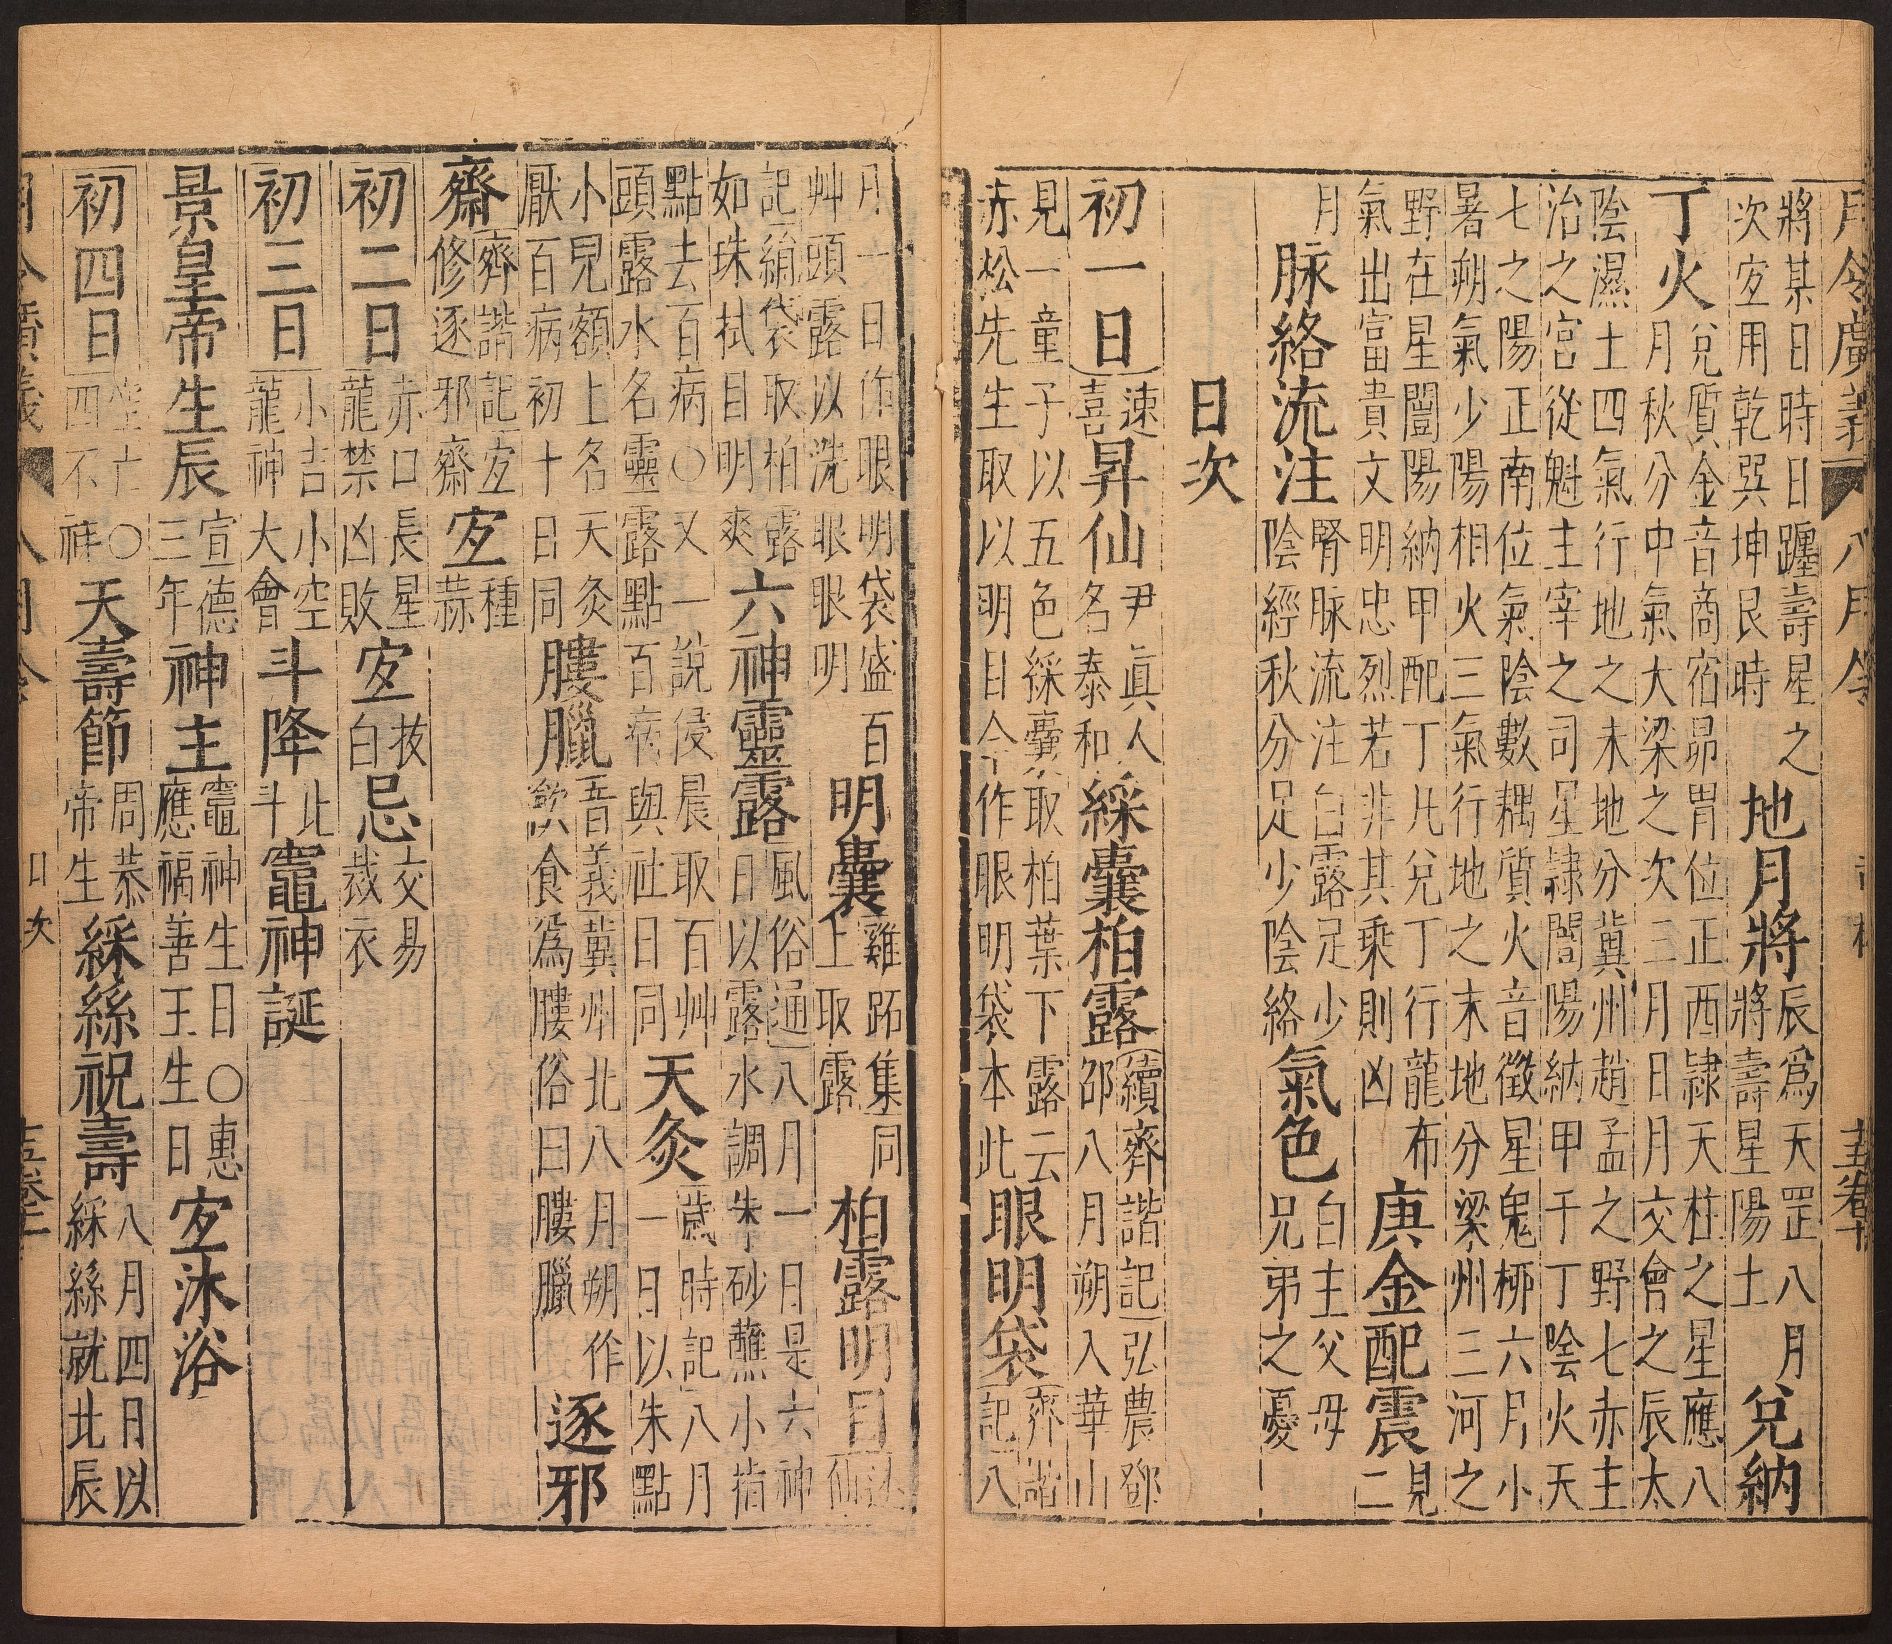 月令廣義 八月令
將某日時日躔壽星之次宜用乾巽坤艮時地月將辰為天罡八月將壽星陽土兌納
丁火兌質金音商宿昴胃位正西隸天柱之星應八月秋分中氣大梁之次三月日月交會之辰太
陰濕土四氣行地之未地分冀州趙孟之野七赤主治之宮從魁主宰之司星隸闇陽納甲于丁陰火天
七之陽正南位氣陰數耦質火音徵星鬼柳六月小暑朔氣少陽相火三氣行地之末地分梁州三河之
野在星闇陽納甲配丁凡兌丁行龍布氣出富貴文明忠烈若非其乘則凶庚金配震見二
月脉絡流注腎脉流注白露足少陰經秋分足少陰絡氣色白主父母兄弟之憂
日次
初一日速喜昇仙尹眞人名泰和綵囊柏露續齊諧記弘農鄧邵八月朔入華山
見一童子以五色綵囊取柏葉下露云赤松先生取以明目今作眼明袋本此眼明袋齊諧記八
月一日作眼明袋盛百艸頭露以洗眼眼明明囊雞跖集同上取露柏露明目述仙
記絹袋取柏露如珠拭目明爽六神靈露風俗通八月一日是六神日以露水調朱砂蘸小指
點去百病○又一說侵晨取百艸頭露水名靈露點百病與社日同天灸歲時記八月一日以朱點
小兒額上名天灸厭百病初十日同膢臘音義冀州北八月朔作飲食爲膢俗曰膢臘逐邪
齋齊諧記宜修逐邪齋宜種蒜
初二日赤口長星龍禁凶敗宜拔白忌交易裁衣
初三日小吉小空龍神大會斗降北斗竈神誕
景皇帝生辰宣德三年神主竈神生日○惠應福善王生日宜沐浴
初四日空亡○四不祥天壽節周恭帝生綵絲祝壽八月四日以綵絲就北辰
月令廣義 八月令 日次